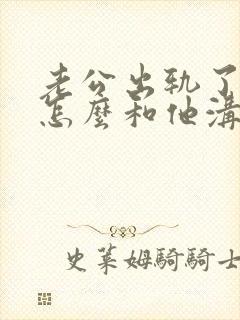 老公出軌了
怎麼和他溝
史萊姆騎騎士